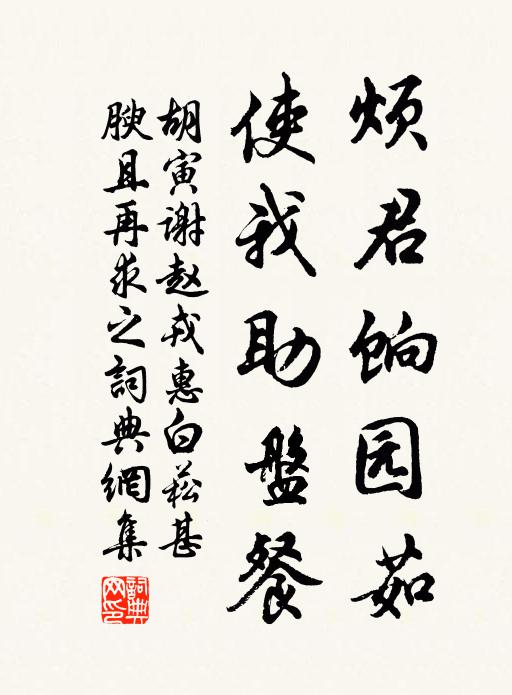 烦君饷园茹
使我助盤餐
胡寅谢赵戎惠白菘甚
腴且再求之詞典網集
詞典
网印